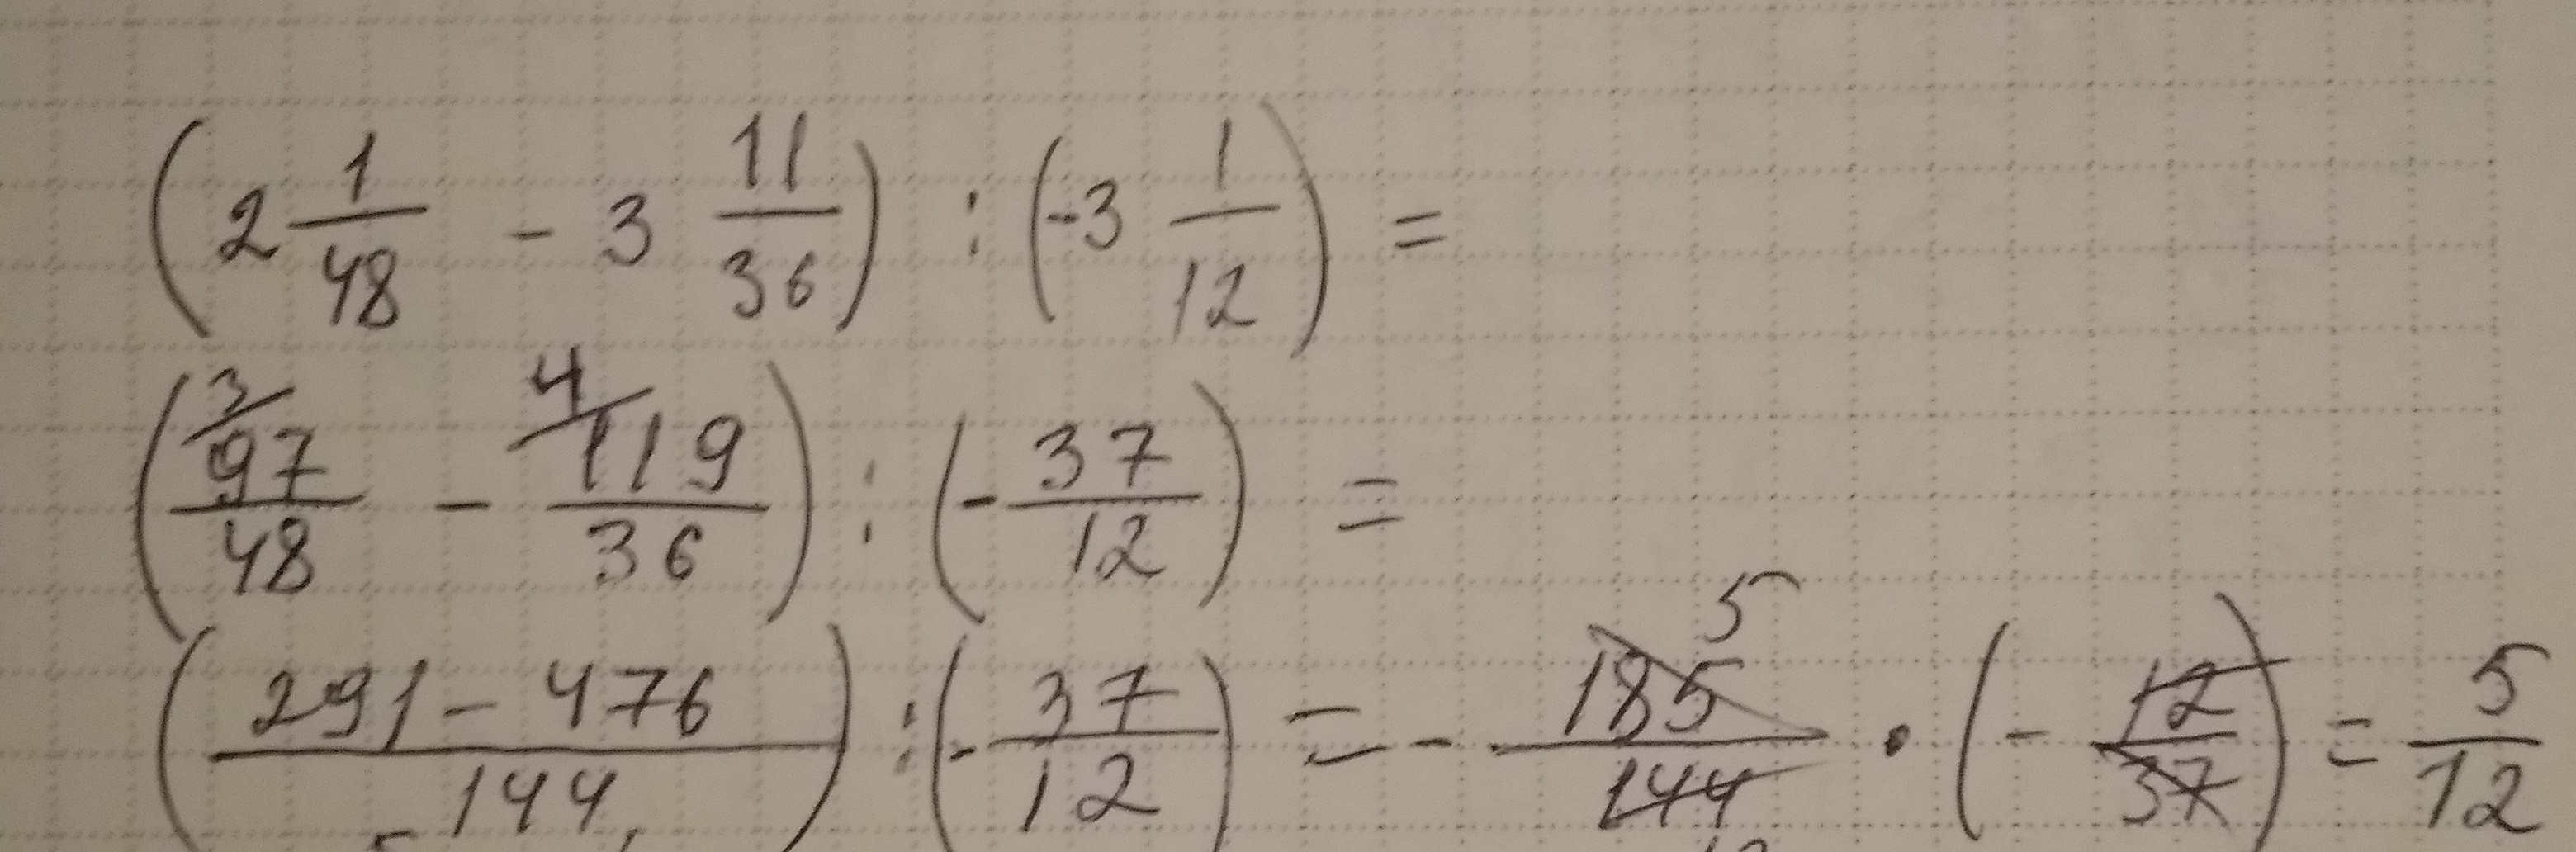 (2 1/48 - 3 11/36) : (-3 1/12) =
(3/ 97/48 - 4/ 119/36) : (- 37/12) =
(291 - 476 / 144) : (- 37/12) = - 185/144 5 · (- 12/37) = 5/12